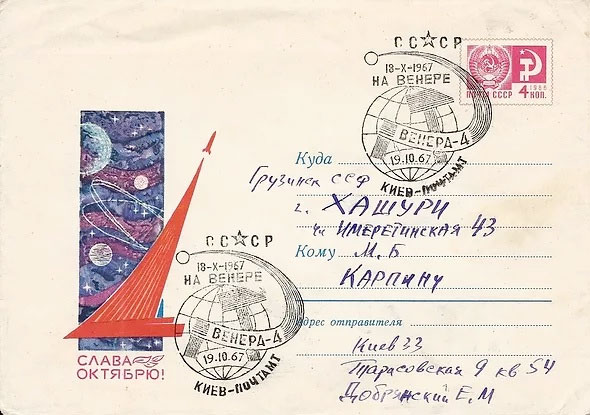 СССР
18-X-1967
НА ВЕНЕРЕ
ВЕНЕРА-4
19.10.67
КИЕВ-ПОЧТАМТ
ПОЧТА СССР
1966
4 КОП.
Куда
Грузинск ССР
г. ХАШУРИ
ул ИМЕРЕТИНСКАЯ 43
Кому М.Б
КАРПИНУ
СССР
18-X-1967
НА ВЕНЕРЕ
ВЕНЕРА-4
19.10.67
КИЕВ-ПОЧТАМТ
СЛАВА
ОКТЯБРЮ!
Адрес отправителя
Киев 33
Тарасовская 9 кв 54
Добрянский Е.М